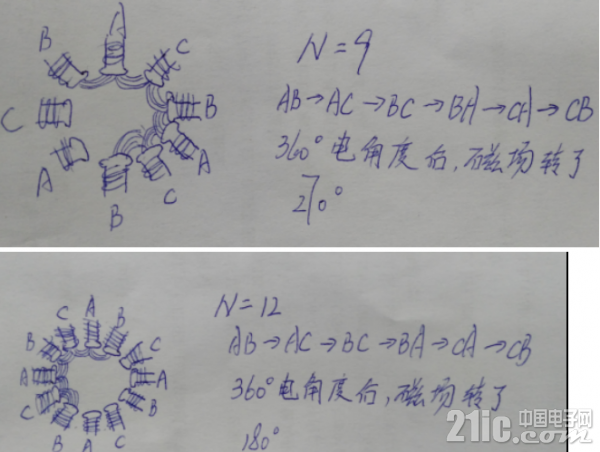 A
B
C
C
B
A
A
C
B
N=9
AB→AC→BC→BA→CA→CB
360°电角度后,磁场转了
270°
C A B
B
C
A
A
C
B
B A C
N=12
AB→AC→BC→BA→CA→CB
360°电角度后,磁场转了
180°
21ic.com 中国电子网